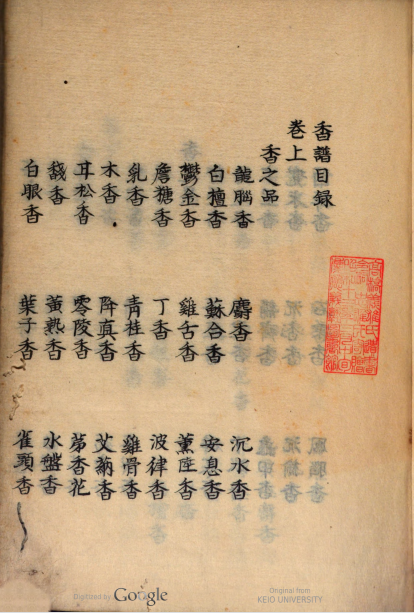 香譜目録
巻上
香之品
龍腦香 麝香 沉水香
白檀香 蘇合香 安息香
鬱金香 雞舌香 薫陸香
詹糖香 丁香 波律香
乳香 青桂香 雞骨香
木香 降真香 艾蒳香
耳松香 零陵香 茅香花
馢香 黄熟香 水盤香
白眼香 葉子香 雀頭香
Digitized by Google
Original from
KEIO UNIVERSITY